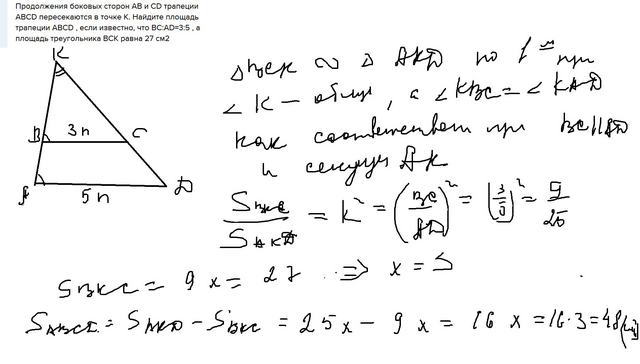 Продолжения боковых сторон AB и CD трапеции
ABCD пересекаются в точке K. Найдите площадь
трапеции ABCD , если известно, что BC:AD=3:5 , а
площадь треугольника BCK равна 27 см2
K
B 3n C
A 5n D
△BCK ∾ △AKD по 1
∠K — общий, а ∠KBC = ∠KAD
как соответствен при BC||AD
и секущ AK
S BKC / S AKD = K² = (BC/AD)² = (3/5)² = 9/25
S BKC = 9x = 27 ⇒ x = 3
S ABCD = S AKD − S BKC = 25x − 9x = 16x = 16·3 = 48